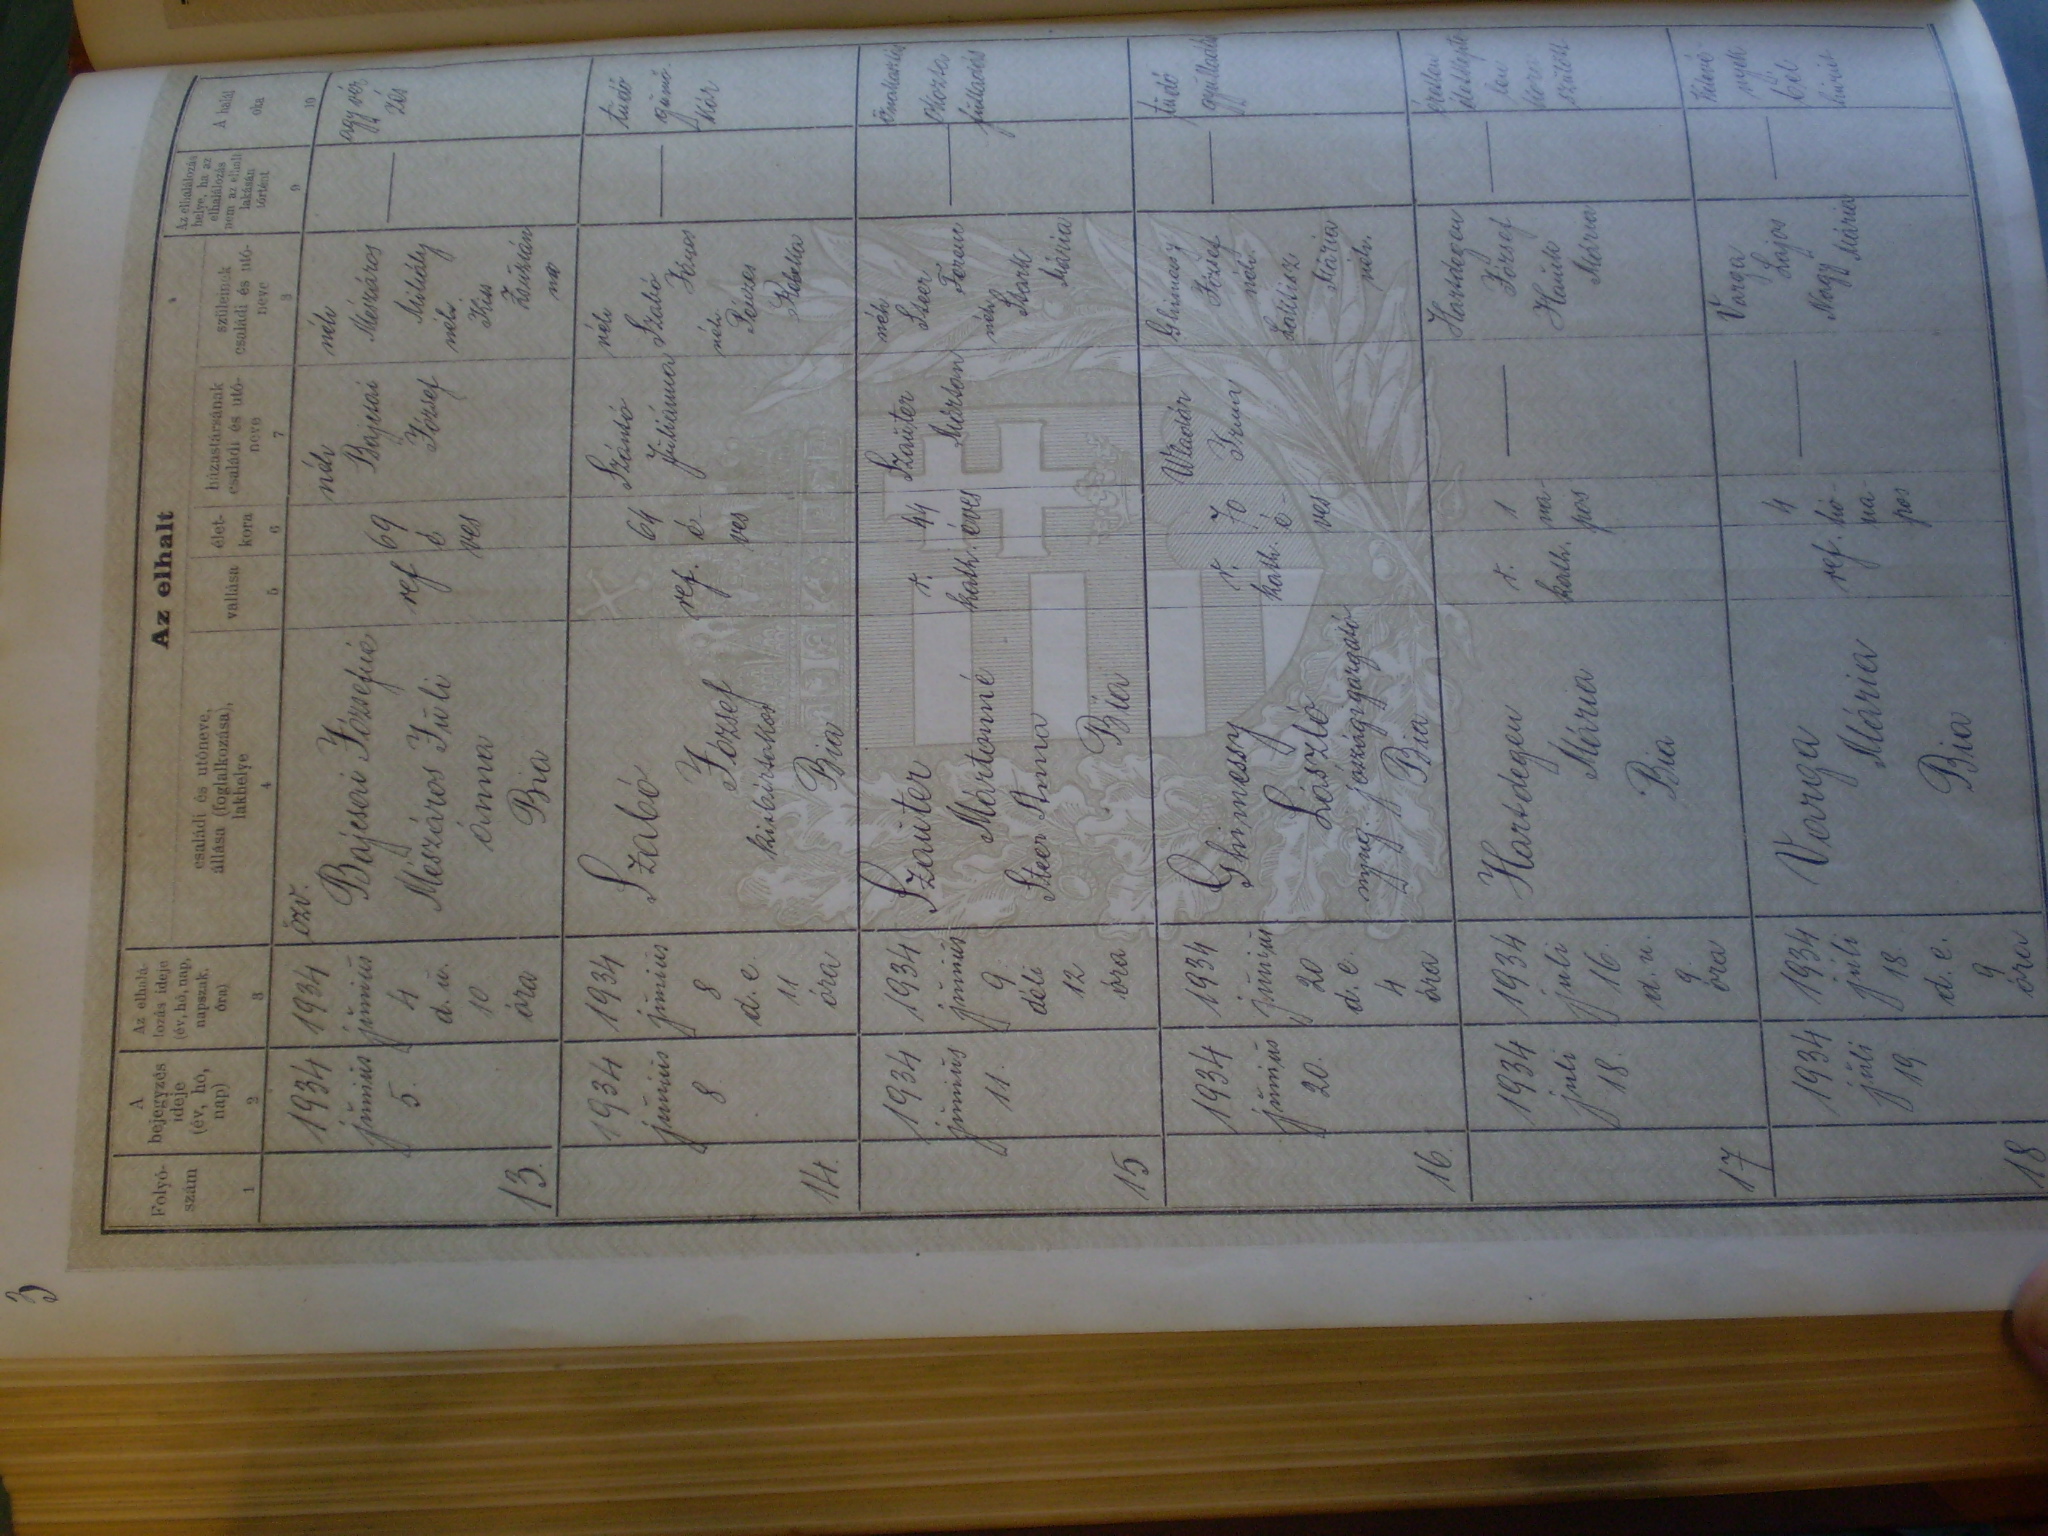 3
Az elhalt
Folyó-
szám
A
bejegyzés
ideje
(év, hó,
nap)
Az elhalá-
lozás ideje
(év, hó, nap,
napszak,
óra)
családi és utóneve,
állása (foglalkozása),
lakhelye
vallása
élet-
kora
házastársának
családi és utó-
neve
szüleinek
családi és utó-
neve
Az elhalálozás
helye, ha az
elhalálozás
nem az elhalt
lakásán
történt
A halál
oka
1
2
3
4
5
6
7
8
9
10
13.
1934
június
5.
1934
június
4
d. u.
10
óra
özv.
Bajcsai Józsefné
Mészáros Juli
ánna
Bia
ref
69
é
ves
néh
Bajcsai
József
néh
Mészáros
Mihály
néh
Kiss
Zsuzsán
na
agy vér
zés
14.
1934
június
8
1934
június
8
d. e.
11
óra
Szabó
József
kisbirtokos
Bia
ref.
64
é-
ves
Szántó
Juliánna
néh
Szabó
János
néh
Rebeka
tüdő
gümő
kór
15
1934
június
11.
1934
június
9.
déli
12
óra
Szauter
Mártonné
Steer Anna
Bia
r.
kath.
44
éves
Szauter
Márton
néh
Steer
Ferenc
néh
Stark
Mária
önakasztás
okozta
fulladás
16.
1934
június
20.
1934
június
20
d. e.
4
óra
Ghimessy
László
nyug. jószágigazgató
Bia
r.
kath.
70
é-
ves
Irma
Ghimessy
József
néh.
Mária
néh.
tüdő
gyulladás
17
1934
juli
18.
1934
juli
16.
d. u.
9
óra
Hartdegen
Mária
Bia
r.
kath.
1
na-
pos
Hartdegen
József
Hauck
Mária
éretlen
életképte
len
kora
szülött
18
1934
juli
19
1934
juli
18.
d. e.
9
óra
Varga
Mária
Bia
ref.
4
hó-
na-
pos
Varga
Lajos
Nagy
Mária
bél
hurut